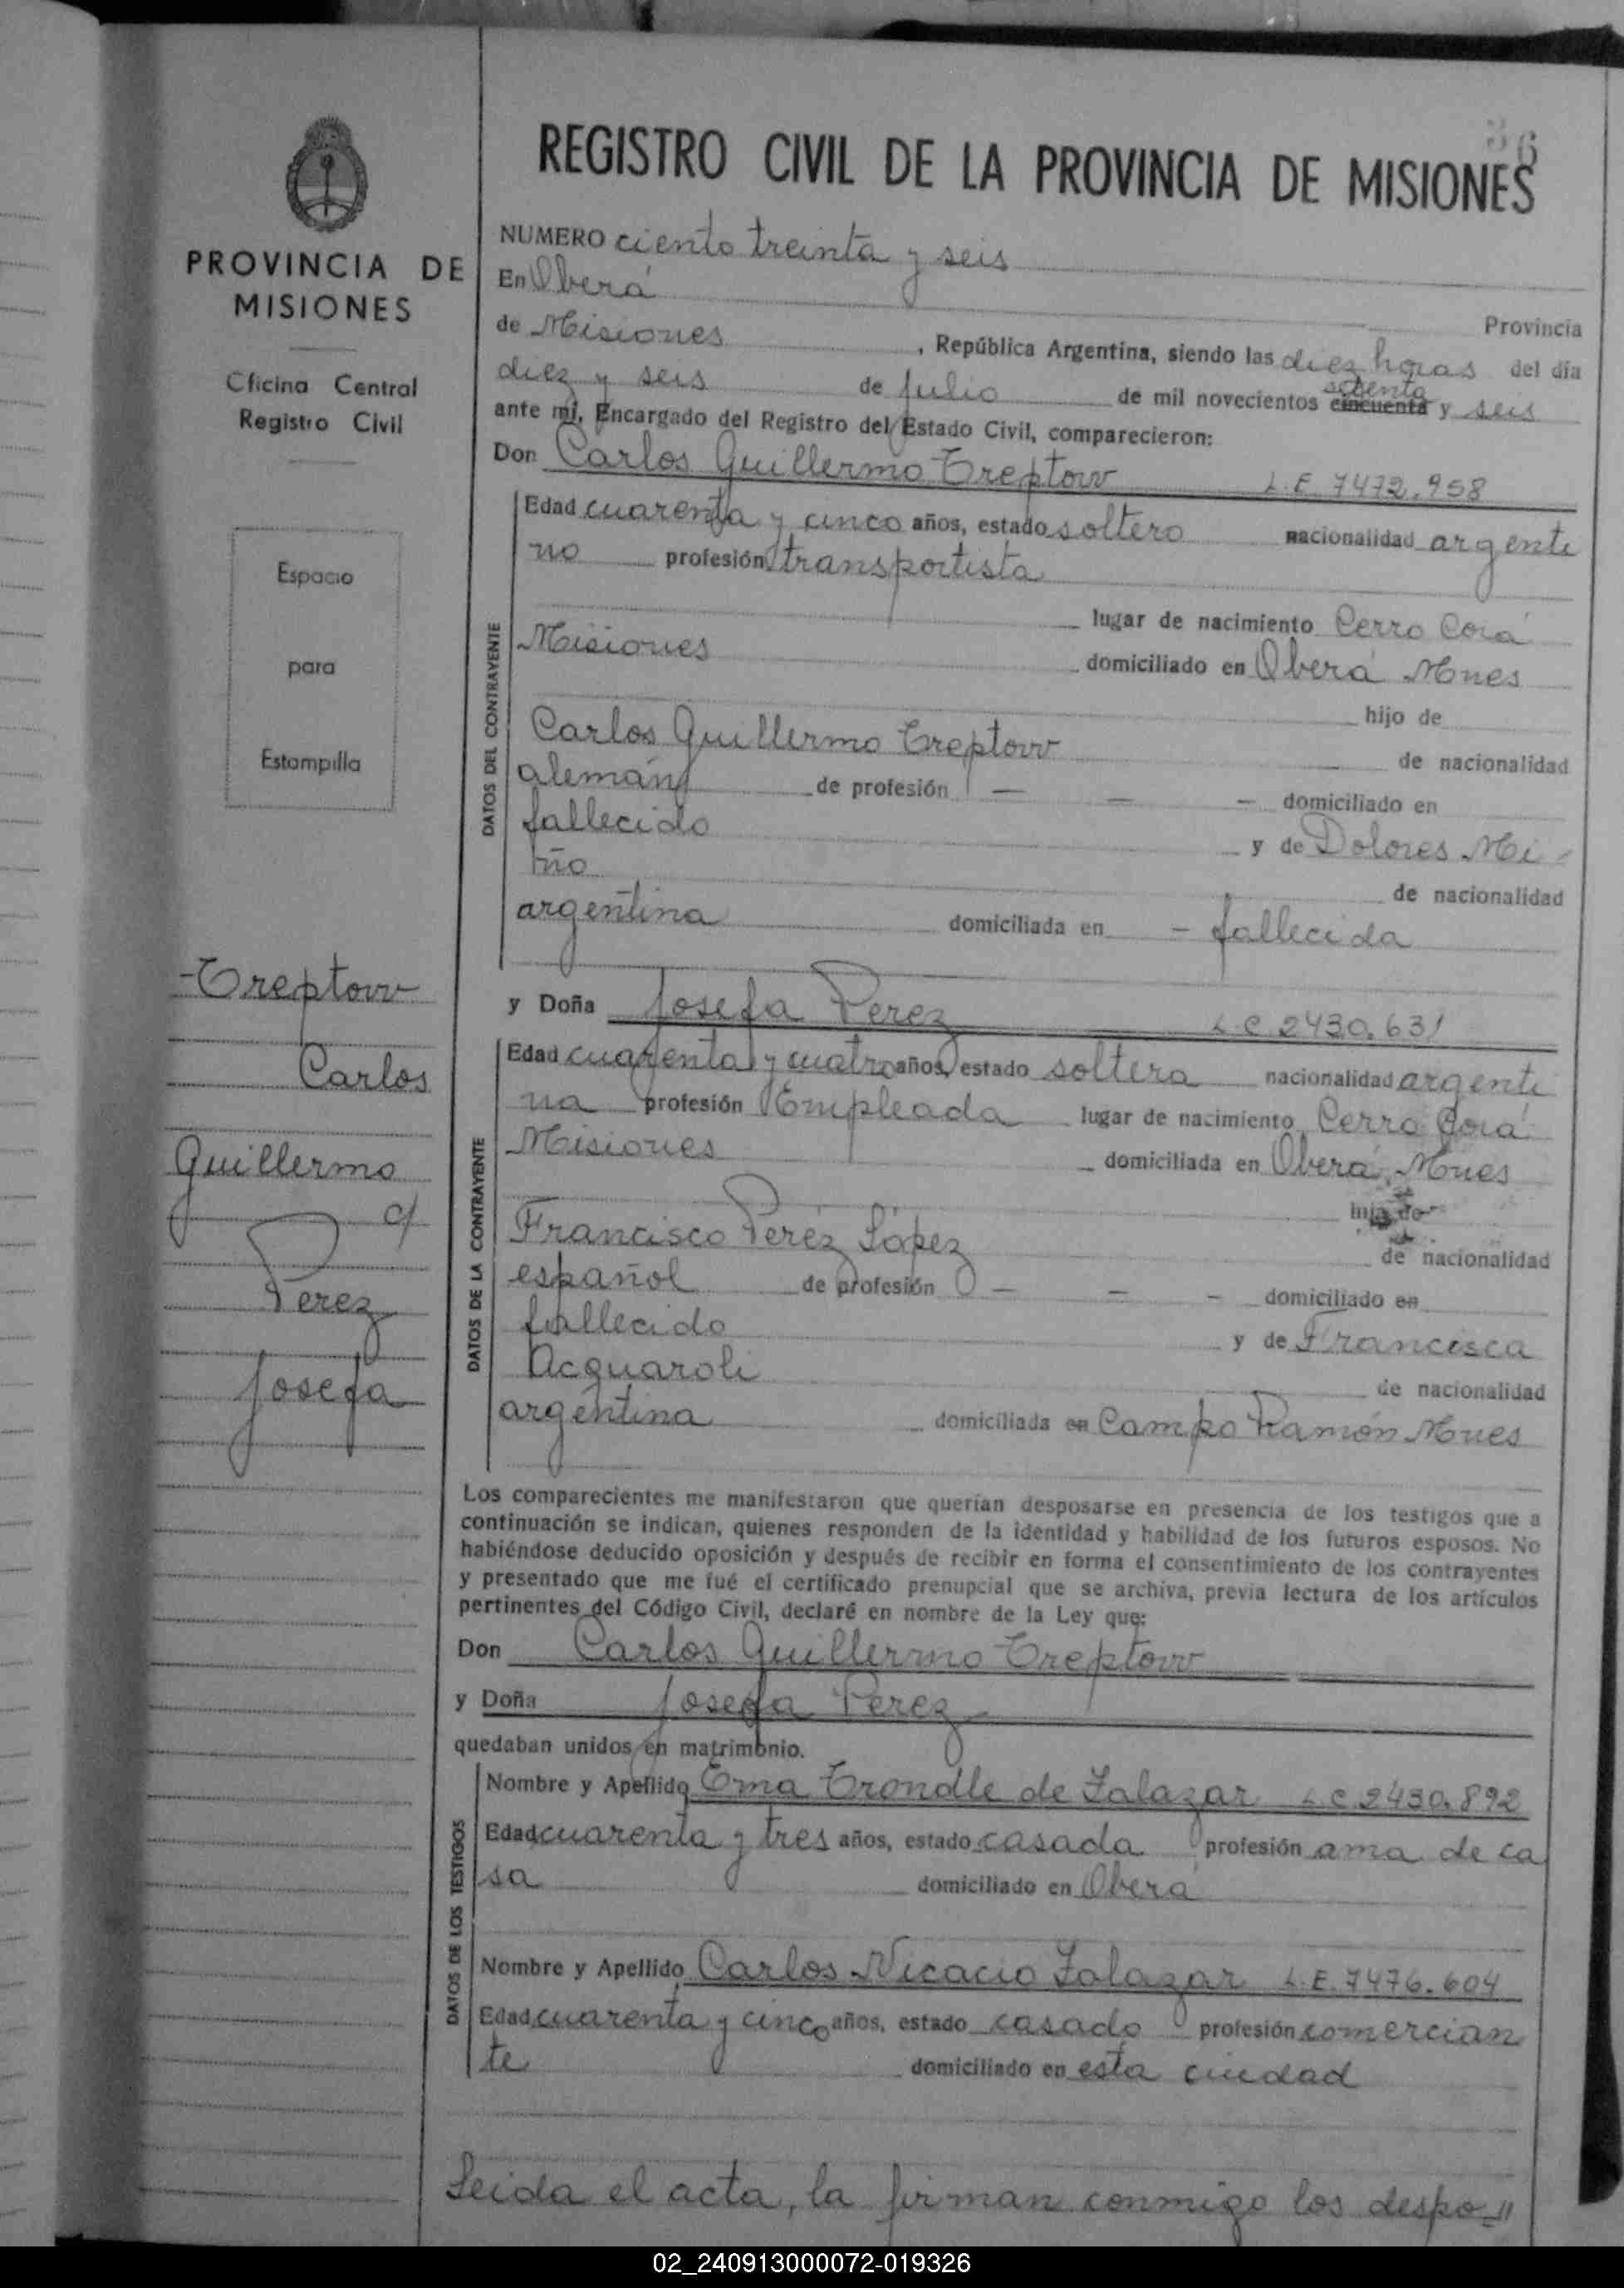 36
REGISTRO CIVIL DE LA PROVINCIA DE MISIONES
PROVINCIA DE
MISIONES
Oficina Central
Registro Civil
Espacio
para
Estampilla
NUMERO ciento treinta y seis
En Oberá Provincia
de Misiones , República Argentina, siendo las diez horas del día
setenta
diez y seis de julio de mil novecientos cincuenta y seis
ante mí, Encargado del Registro del Estado Civil, comparecieron:
Don Carlos Guillermo Treptow L.E. 7472.958
DATOS DEL CONTRAYENTE
Edad cuarenta y cinco años, estado soltero nacionalidad argenti
no profesión transportista
lugar de nacimiento Cerro Corá
Misiones domiciliado en Oberá Mnes
hijo de
Carlos Guillermo Treptow de nacionalidad
alemán de profesión — — — domiciliado en
fallecido y de Dolores Mi
ño de nacionalidad
argentina domiciliada en - fallecida
y Doña Josefa Perez L.C 2430.631
DATOS DE LA CONTRAYENTE
Edad cuarenta y cuatro años, estado soltera nacionalidad argenti
na profesión Empleada lugar de nacimiento Cerro Corá
Misiones domiciliada en Oberá, Mnes
hija de
Francisco Peréz López de nacionalidad
español de profesión — — — domiciliado en
fallecido y de Francisca
Acquaroli de nacionalidad
argentina domiciliada en Campo Ramón Mnes
-Treptow
Carlos
Guillermo
c/
Perez
Josefa
Los comparecientes me manifestaron que querían desposarse en presencia de los testigos que a
continuación se indican, quienes responden de la identidad y habilidad de los futuros esposos. No
habiéndose deducido oposición y después de recibir en forma el consentimiento de los contrayentes
y presentado que me fué el certificado prenupcial que se archiva, previa lectura de los artículos
pertinentes del Código Civil, declaré en nombre de la Ley que:
Don Carlos Guillermo Treptow
y Doña Josefa Perez
quedaban unidos en matrimonio.
DATOS DE LOS TESTIGOS
Nombre y Apellido Ema Trondle de Zalazar L.C 2430.892
Edad cuarenta y tres años, estado casada profesión ama de ca
sa domiciliado en Oberá
Nombre y Apellido Carlos Nicacio Zalazar L.E. 7476.604
Edad cuarenta y cinco años, estado casado profesión comercian
te domiciliado en esta ciudad
Leida el acta, la firman conmigo los despo="
02_240913000072-019326